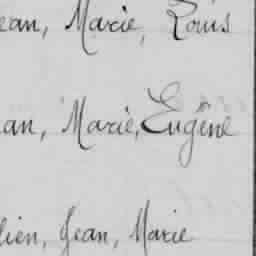 ean, Marie, Louis
an, Marie, Eugène
lien, Jean, Marie